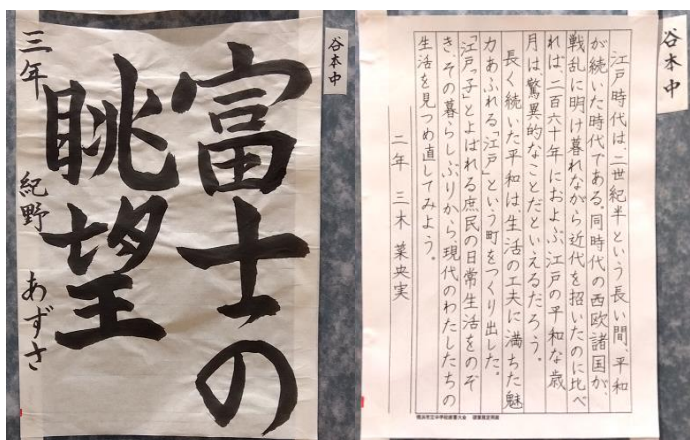 谷本中
富士の
眺望
三年 紀野 あずさ
谷本中
江戸時代は、二世紀半という長い間、平和
が続いた時代である。同時代の西欧諸国が、
戦乱に明け暮れながら近代を招いたのに比べ
れば、二百六十年におよぶ江戸の平和な歳
月は驚異的なことだといえるだろう。
長く続いた平和は、生活の工夫に満ちた魅
力あふれる「江戸」という町をつくり出した。
「江戸っ子」とよばれる庶民の日常生活をのぞ
き、その暮らしぶりから、現代のわたしたちの
生活を見つめ直してみよう。
二年 三木 菜央実